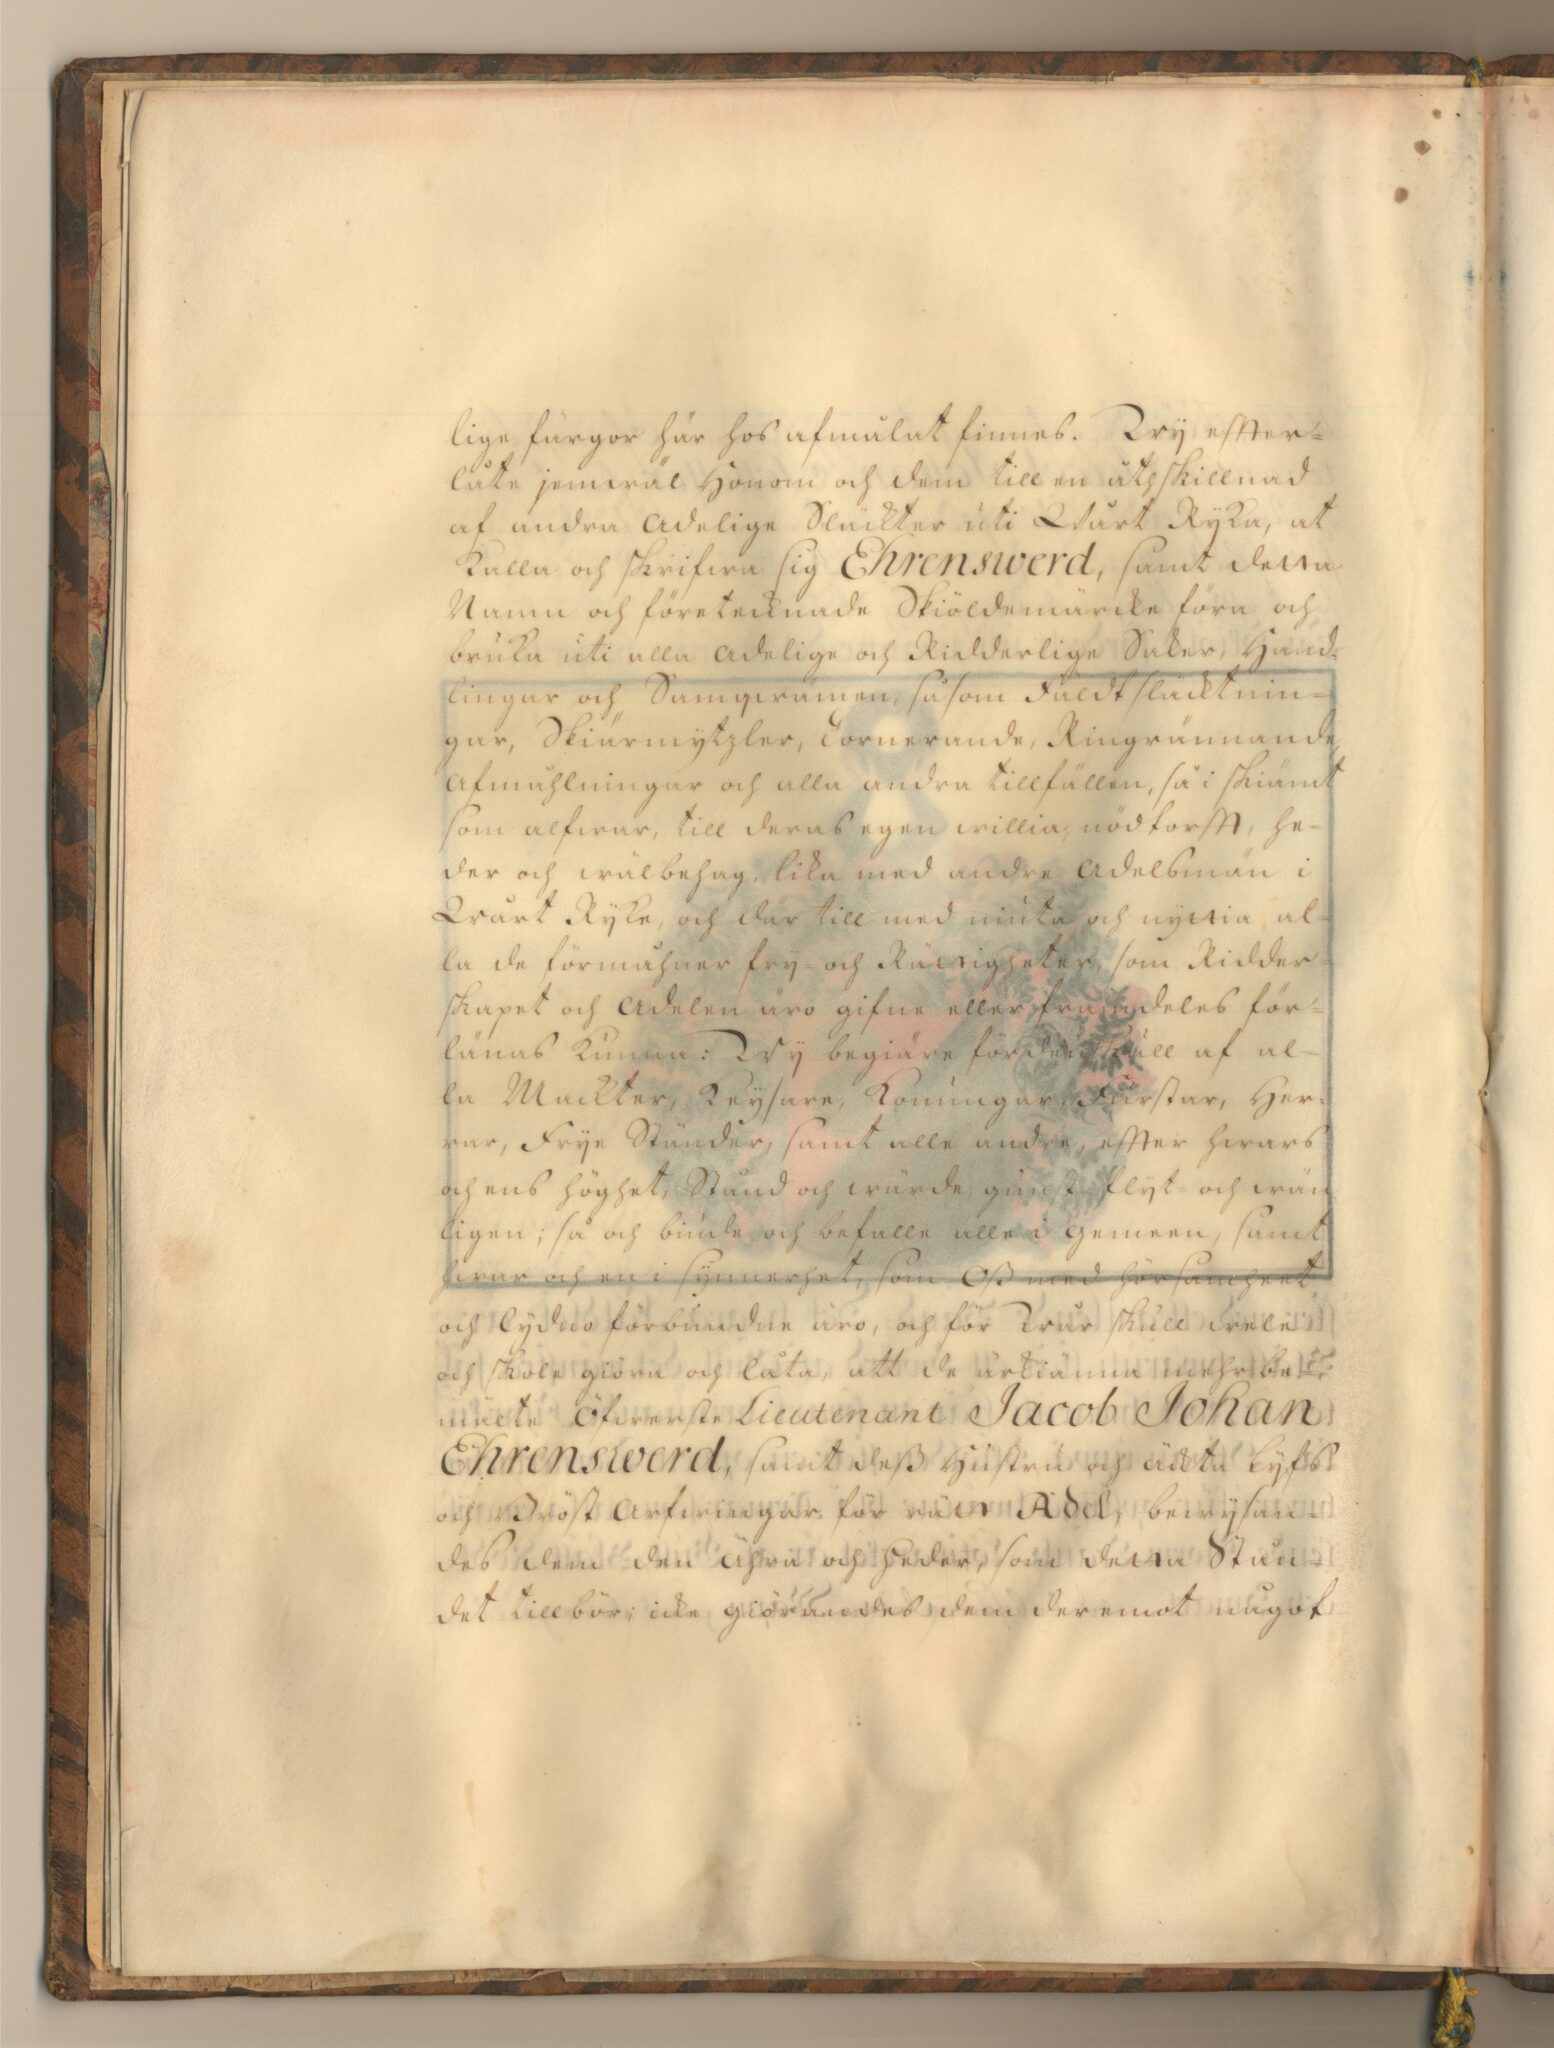 lige färgor här hos afmålat finnes. Wy effter-
låte jemwäl Honom och dem till en åtskillnad
af andra Adelige Släckter uti Wårt Ryke, at
kalla och skrifwa sig Ehrenswerd, samt detta
Namn och företecknade Skiöldemärcke föra och
bruka uti alla Adelige och Ridderlige Saker, Hand-
lingar och Samqwämen, såsom Fäldtslacktnin-
gar, Skiärmytzler, Tornerande, Ringrännande,
Afmåhlningar och alla andra tillfällen, så i skiämt
som alfwar, till deras egen willia, nödtorfft, he-
der och wälbehag, lika med andre Adelsmän i
Wårt Ryke, och där till med niuta och nyttia al-
la de förmåhner fry- och Rättigheter, som Ridder-
skapet och Adelen äro gifne eller framdeles för-
länas kunna: Wy begiäre fördenskull af al-
la Mackter, Keysare, Konungar, Furstar, Her-
rar, Frye Ständer, samt alle andre, effter hwars
och ens höghet, Stånd och wärde gunst- flyt- och wän-
ligen; så och biude och befalle alle i gemeen, samt
hwar och en i synnerhet, som Oss med hörsamheet
och lydno förbundne äro, och för Wår skull wele
och skole giöra och låta, att de ärkiänna mehrbe-
mälte Öfwerste Lieutenant Jacob Johan
Ehrenswerd, samt dess Hustru och äckta Lyfs-
och Bröst Arfwingar för rätt Adel, bewysan-
des dem den ähra och heder, som detta Stån-
det tillbör; icke giörandes dem deremot något